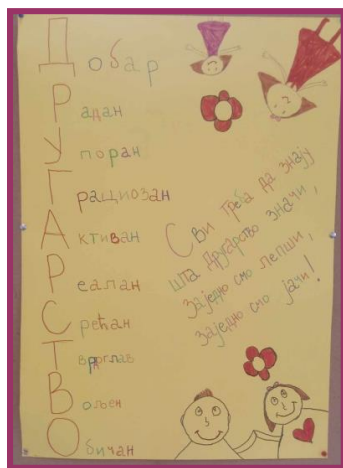 Добар
Радан
Упоран
Грациозан
Активан
Реалан
Срећан
Тврдоглав
Вољен
Обичан
Сви треба да знају
шта другарство значи,
заједно смо лепши,
заједно смо јачи!